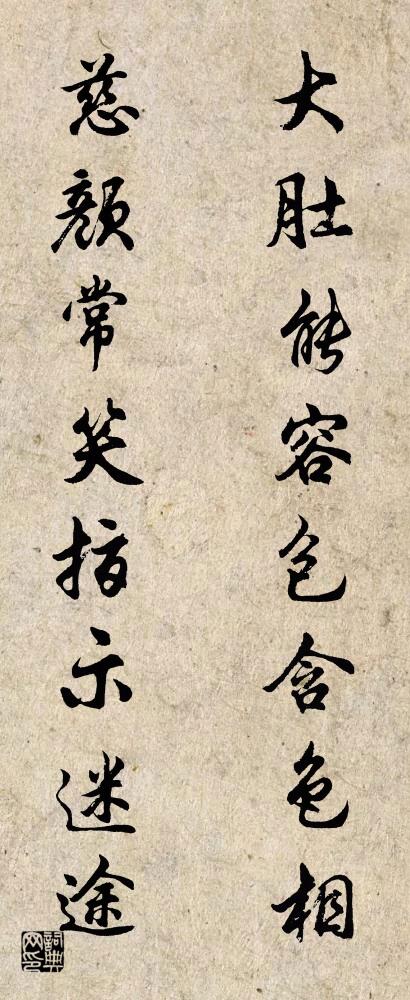 大肚能容包含色相
慈颜常笑指示迷途
詞典网印